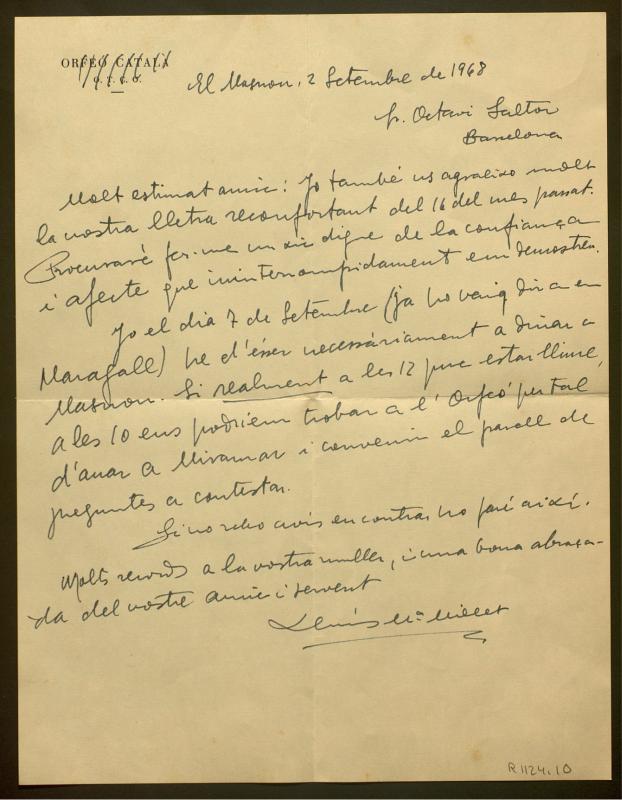 ORFEÓ CATALÀ
El Masnou, 2 Setembre de 1968
Sr. Octavi Saltor
Barcelona
Molt estimat amic: Jo també us agraeixo molt
la vostra lletra reconfortant del 16 del mes passat.
Procuraré fer-me un xic digne de la confiança
i afecte que ininterrompudament em demostreu.
Jo el dia 7 de Setembre (ja ho vaig dir a en
Maragall) he d'ésser necessàriament a dinar a
Masnou. Si realment a les 12 puc estar lliure,
a les 10 ens podríem trobar a l'Orfeó per tal
d'anar a Miramar i convenir el parell de
preguntes a contestar.
Si no rebo avís en contra, ho faré així.
Molts records a la vostra muller, i una bona abraça-
da del vostre amic i servent
Lluís Mª Millet
R 1124.10